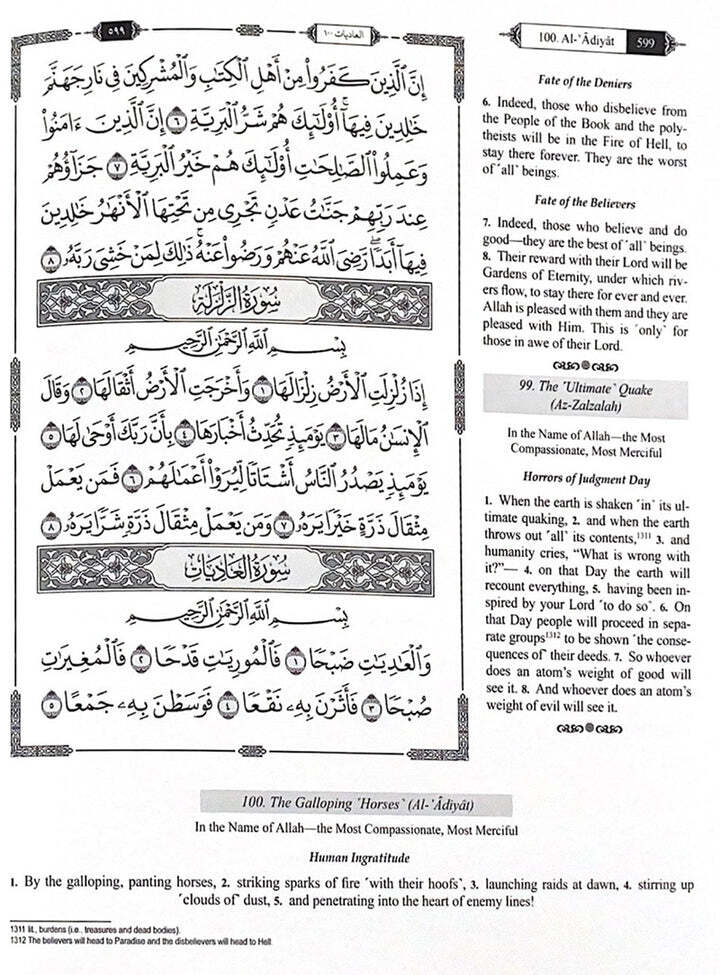 ٥٩٩
العاديات ١٠٠
إِنَّ الَّذِينَ كَفَرُوا مِنْ أَهْلِ الْكِتَابِ وَالْمُشْرِكِينَ فِي نَارِ جَهَنَّمَ
خَالِدِينَ فِيهَا ۚ أُولَٰئِكَ هُمْ شَرُّ الْبَرِيَّةِ ٦ إِنَّ الَّذِينَ ءَامَنُوا
وَعَمِلُوا الصَّالِحَاتِ أُولَٰئِكَ هُمْ خَيْرُ الْبَرِيَّةِ ٧ جَزَاؤُهُمْ
عِندَ رَبِّهِمْ جَنَّاتُ عَدْنٍ تَجْرِي مِن تَحْتِهَا الْأَنْهَارُ خَالِدِينَ
فِيهَا أَبَدًا ۖ رَّضِيَ اللَّهُ عَنْهُمْ وَرَضُوا عَنْهُ ۚ ذَٰلِكَ لِمَنْ خَشِيَ رَبَّهُ ٨
سُورَةُ الزَّلْزَلَةِ
بِسْمِ اللَّهِ الرَّحْمَٰنِ الرَّحِيمِ
إِذَا زُلْزِلَتِ الْأَرْضُ زِلْزَالَهَا ١ وَأَخْرَجَتِ الْأَرْضُ أَثْقَالَهَا ٢ وَقَالَ
الْإِنسَانُ مَا لَهَا ٣ يَوْمَئِذٍ تُحَدِّثُ أَخْبَارَهَا ٤ بِأَنَّ رَبَّكَ أَوْحَىٰ لَهَا ٥
يَوْمَئِذٍ يَصْدُرُ النَّاسُ أَشْتَاتًا لِّيُرَوْا أَعْمَالَهُمْ ٦ فَمَن يَعْمَلْ
مِثْقَالَ ذَرَّةٍ خَيْرًا يَرَهُ ٧ وَمَن يَعْمَلْ مِثْقَالَ ذَرَّةٍ شَرًّا يَرَهُ ٨
سُورَةُ الْعَادِيَاتِ
بِسْمِ اللَّهِ الرَّحْمَٰنِ الرَّحِيمِ
وَالْعَادِيَاتِ ضَبْحًا ١ فَالْمُورِيَاتِ قَدْحًا ٢ فَالْمُغِيرَاتِ
صُبْحًا ٣ فَأَثَرْنَ بِهِ نَقْعًا ٤ فَوَسَطْنَ بِهِ جَمْعًا ٥
100. Al-'Âdiyât 599
Fate of the Deniers
6. Indeed, those who disbelieve from
the People of the Book and the poly-
theists will be in the Fire of Hell, to
stay there forever. They are the worst
of ˹all˺ beings.
Fate of the Believers
7. Indeed, those who believe and do
good—they are the best of ˹all˺ beings.
8. Their reward with their Lord will be
Gardens of Eternity, under which riv-
ers flow, to stay there for ever and ever.
Allah is pleased with them and they are
pleased with Him. This is ˹only˺ for
those in awe of their Lord.
99. The ˹Ultimate˺ Quake
(Az-Zalzalah)
In the Name of Allah—the Most
Compassionate, Most Merciful
Horrors of Judgment Day
1. When the earth is shaken ˹in˺ its ul-
timate quaking, 2. and when the earth
throws out ˹all˺ its contents,1311 3. and
humanity cries, “What is wrong with
it?”— 4. on that Day the earth will
recount everything, 5. having been in-
spired by your Lord ˹to do so˺. 6. On
that Day people will proceed in sepa-
rate groups1312 to be shown ˹the conse-
quences of˺ their deeds. 7. So whoever
does an atom’s weight of good will
see it. 8. And whoever does an atom’s
weight of evil will see it.
100. The Galloping ˹Horses˺ (Al-'Âdiyât)
In the Name of Allah—the Most Compassionate, Most Merciful
Human Ingratitude
1. By the galloping, panting horses, 2. striking sparks of fire ˹with their hoofs˺, 3. launching raids at dawn, 4. stirring up
˹clouds of˺ dust, 5. and penetrating into the heart of enemy lines!
1311 lit., burdens (i.e., treasures and dead bodies).
1312 The believers will head to Paradise and the disbelievers will head to Hell.